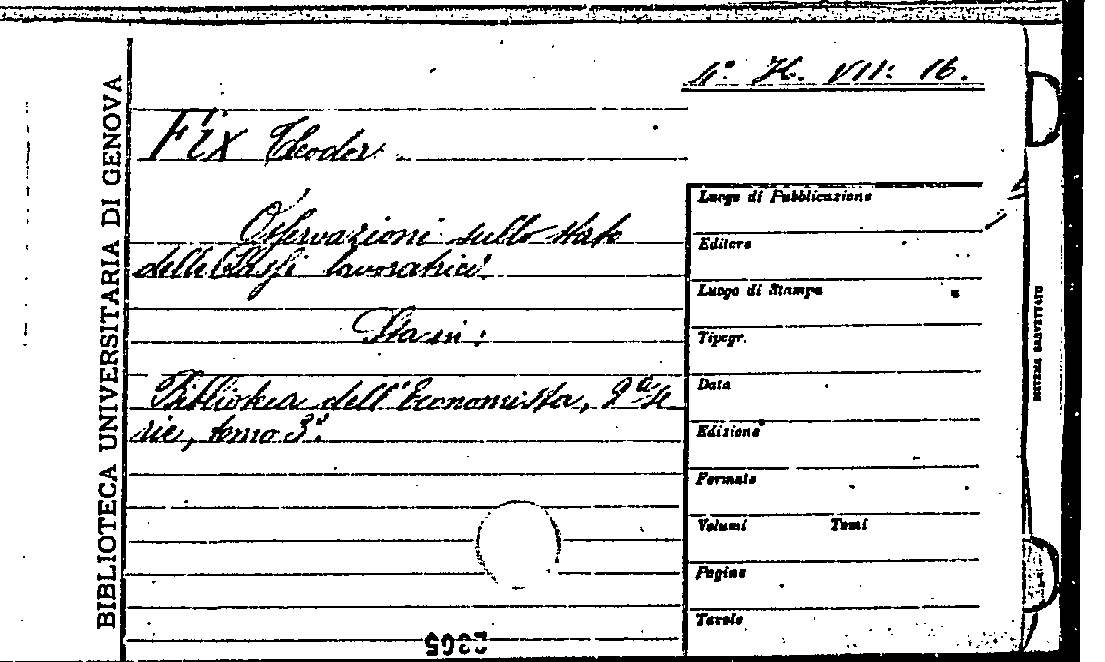 4° H. VII: 16.
BIBLIOTECA UNIVERSITARIA DI GENOVA
Fix Teodor
Osservazioni sullo stato
delle Classi lavoratrici
Sta in:
Biblioteca dell'Economista, 2ª Se
rie, tomo 3°.
Luogo di Pubblicazione
Editore
Luogo di Stampa
Tipogr.
Data
Edizione
Formato
Volumi Tomi
Pagine
Tavole
SISTEMA SALVETTATO